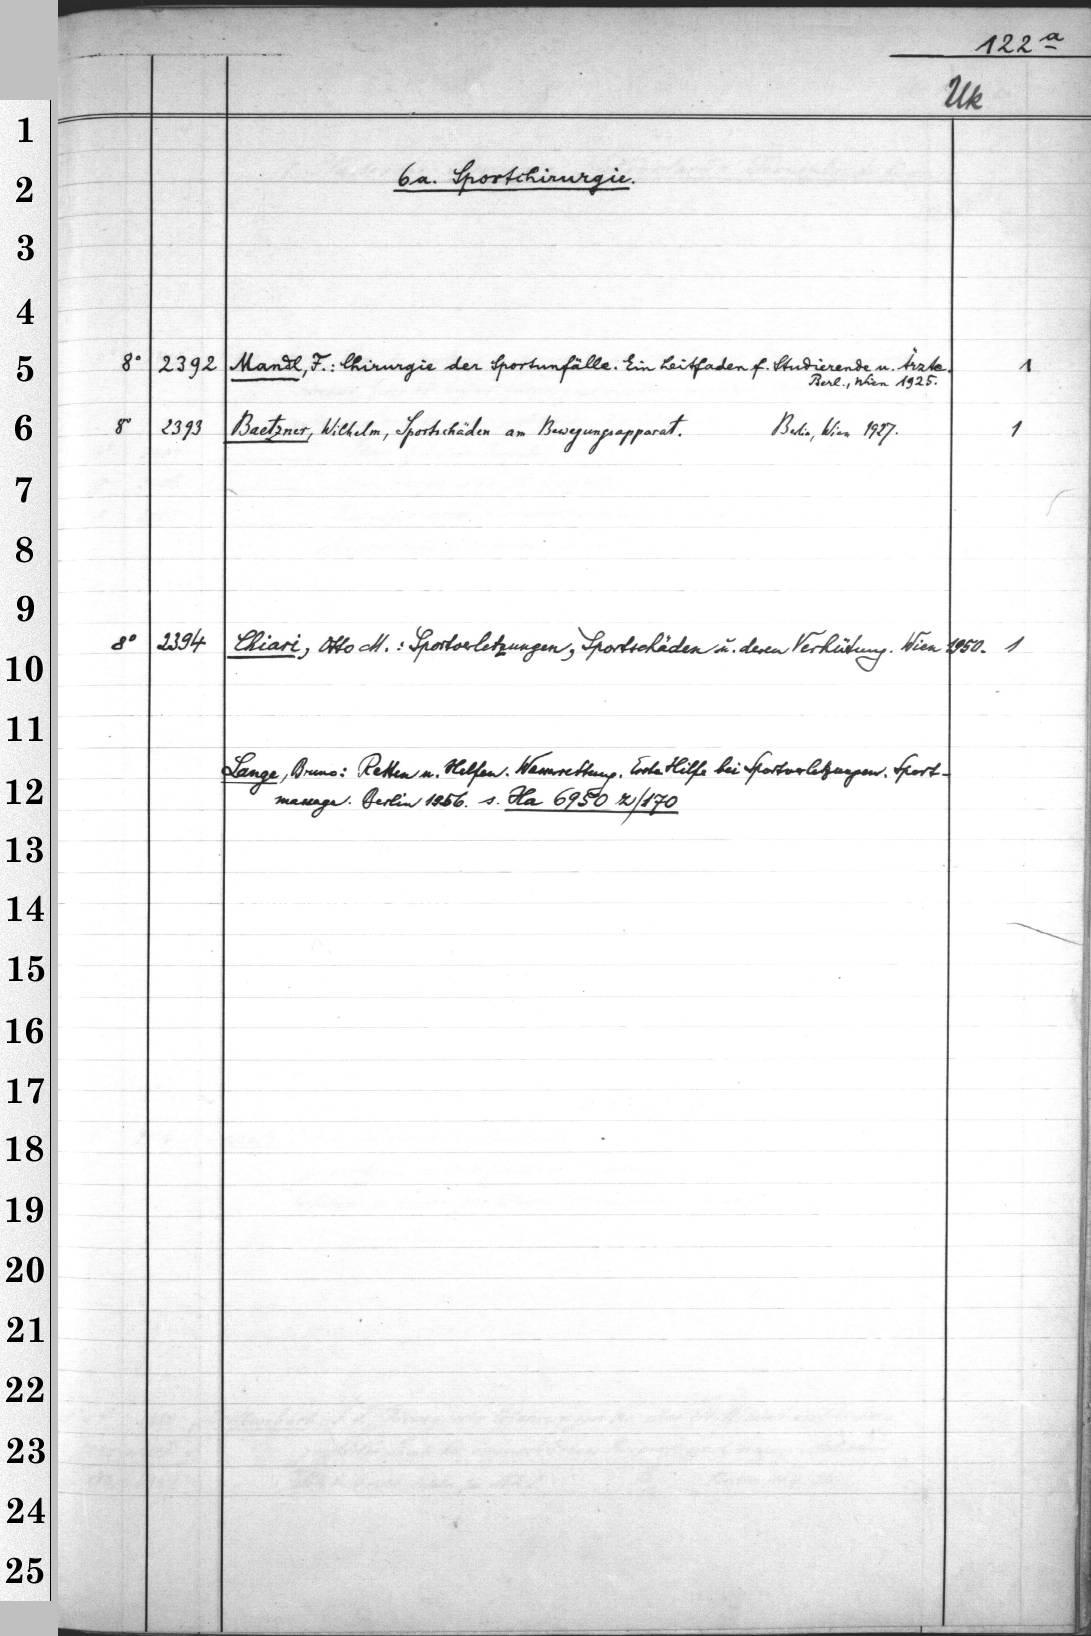 122a
Uk
1
6a. Sportchirurgie.
2
3
4
5 8° 2392 Mandl, F.: Chirurgie der Sportunfälle. Ein Leitfaden f. Studierende u. Ärzte. 1
Berl., Wien 1925.
6 8° 2393 Baetzner, Wilhelm, Sportschäden am Bewegungsapparat. Berlin, Wien 1927. 1
7
8
9
8° 2394 Chiari, Otto M.: Sportverletzungen, Sportschäden u. deren Verhütung. Wien 1950. 1
10
11
Lange, Bruno: Retten u. Helfen. Wasserrettung. Erste Hilfe bei Sportverletzungen. Sport-
12
massage. Berlin 1956. s. Ha 6950 z/170
13
14
15
16
17
18
19
20
21
22
23
24
25